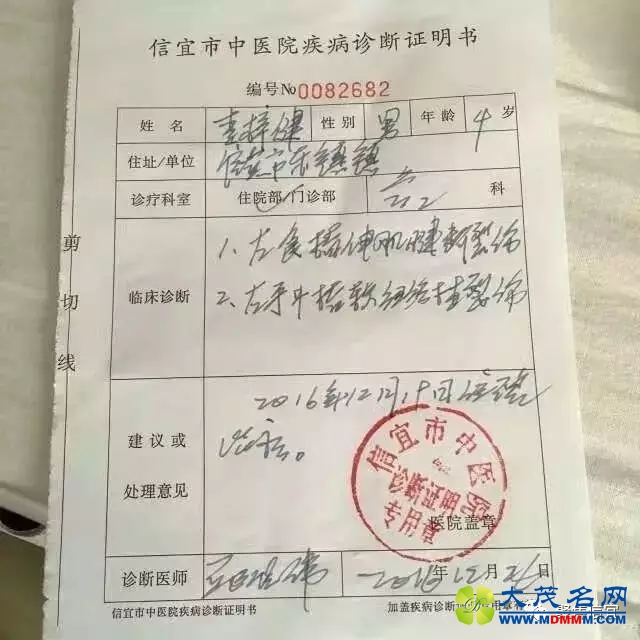 信宜市中医院疾病诊断证明书
编号No0082682
姓名 李梓健 性别 男 年龄 4 岁
住址/单位 信宜市 镇
诊疗科室 住院部/门诊部 科
剪切线
临床诊断
1、左食指伸肌腱断裂伤
2、左手中指软组织挫裂伤
建议或
处理意见
2016年12月19日住院
信宜市中医院
诊断证明
专用章
医院盖章
诊断医师 2016年12月26日
信宜市中医院疾病诊断证明书 加盖疾病诊
大茂名网
www.MDMMM.com